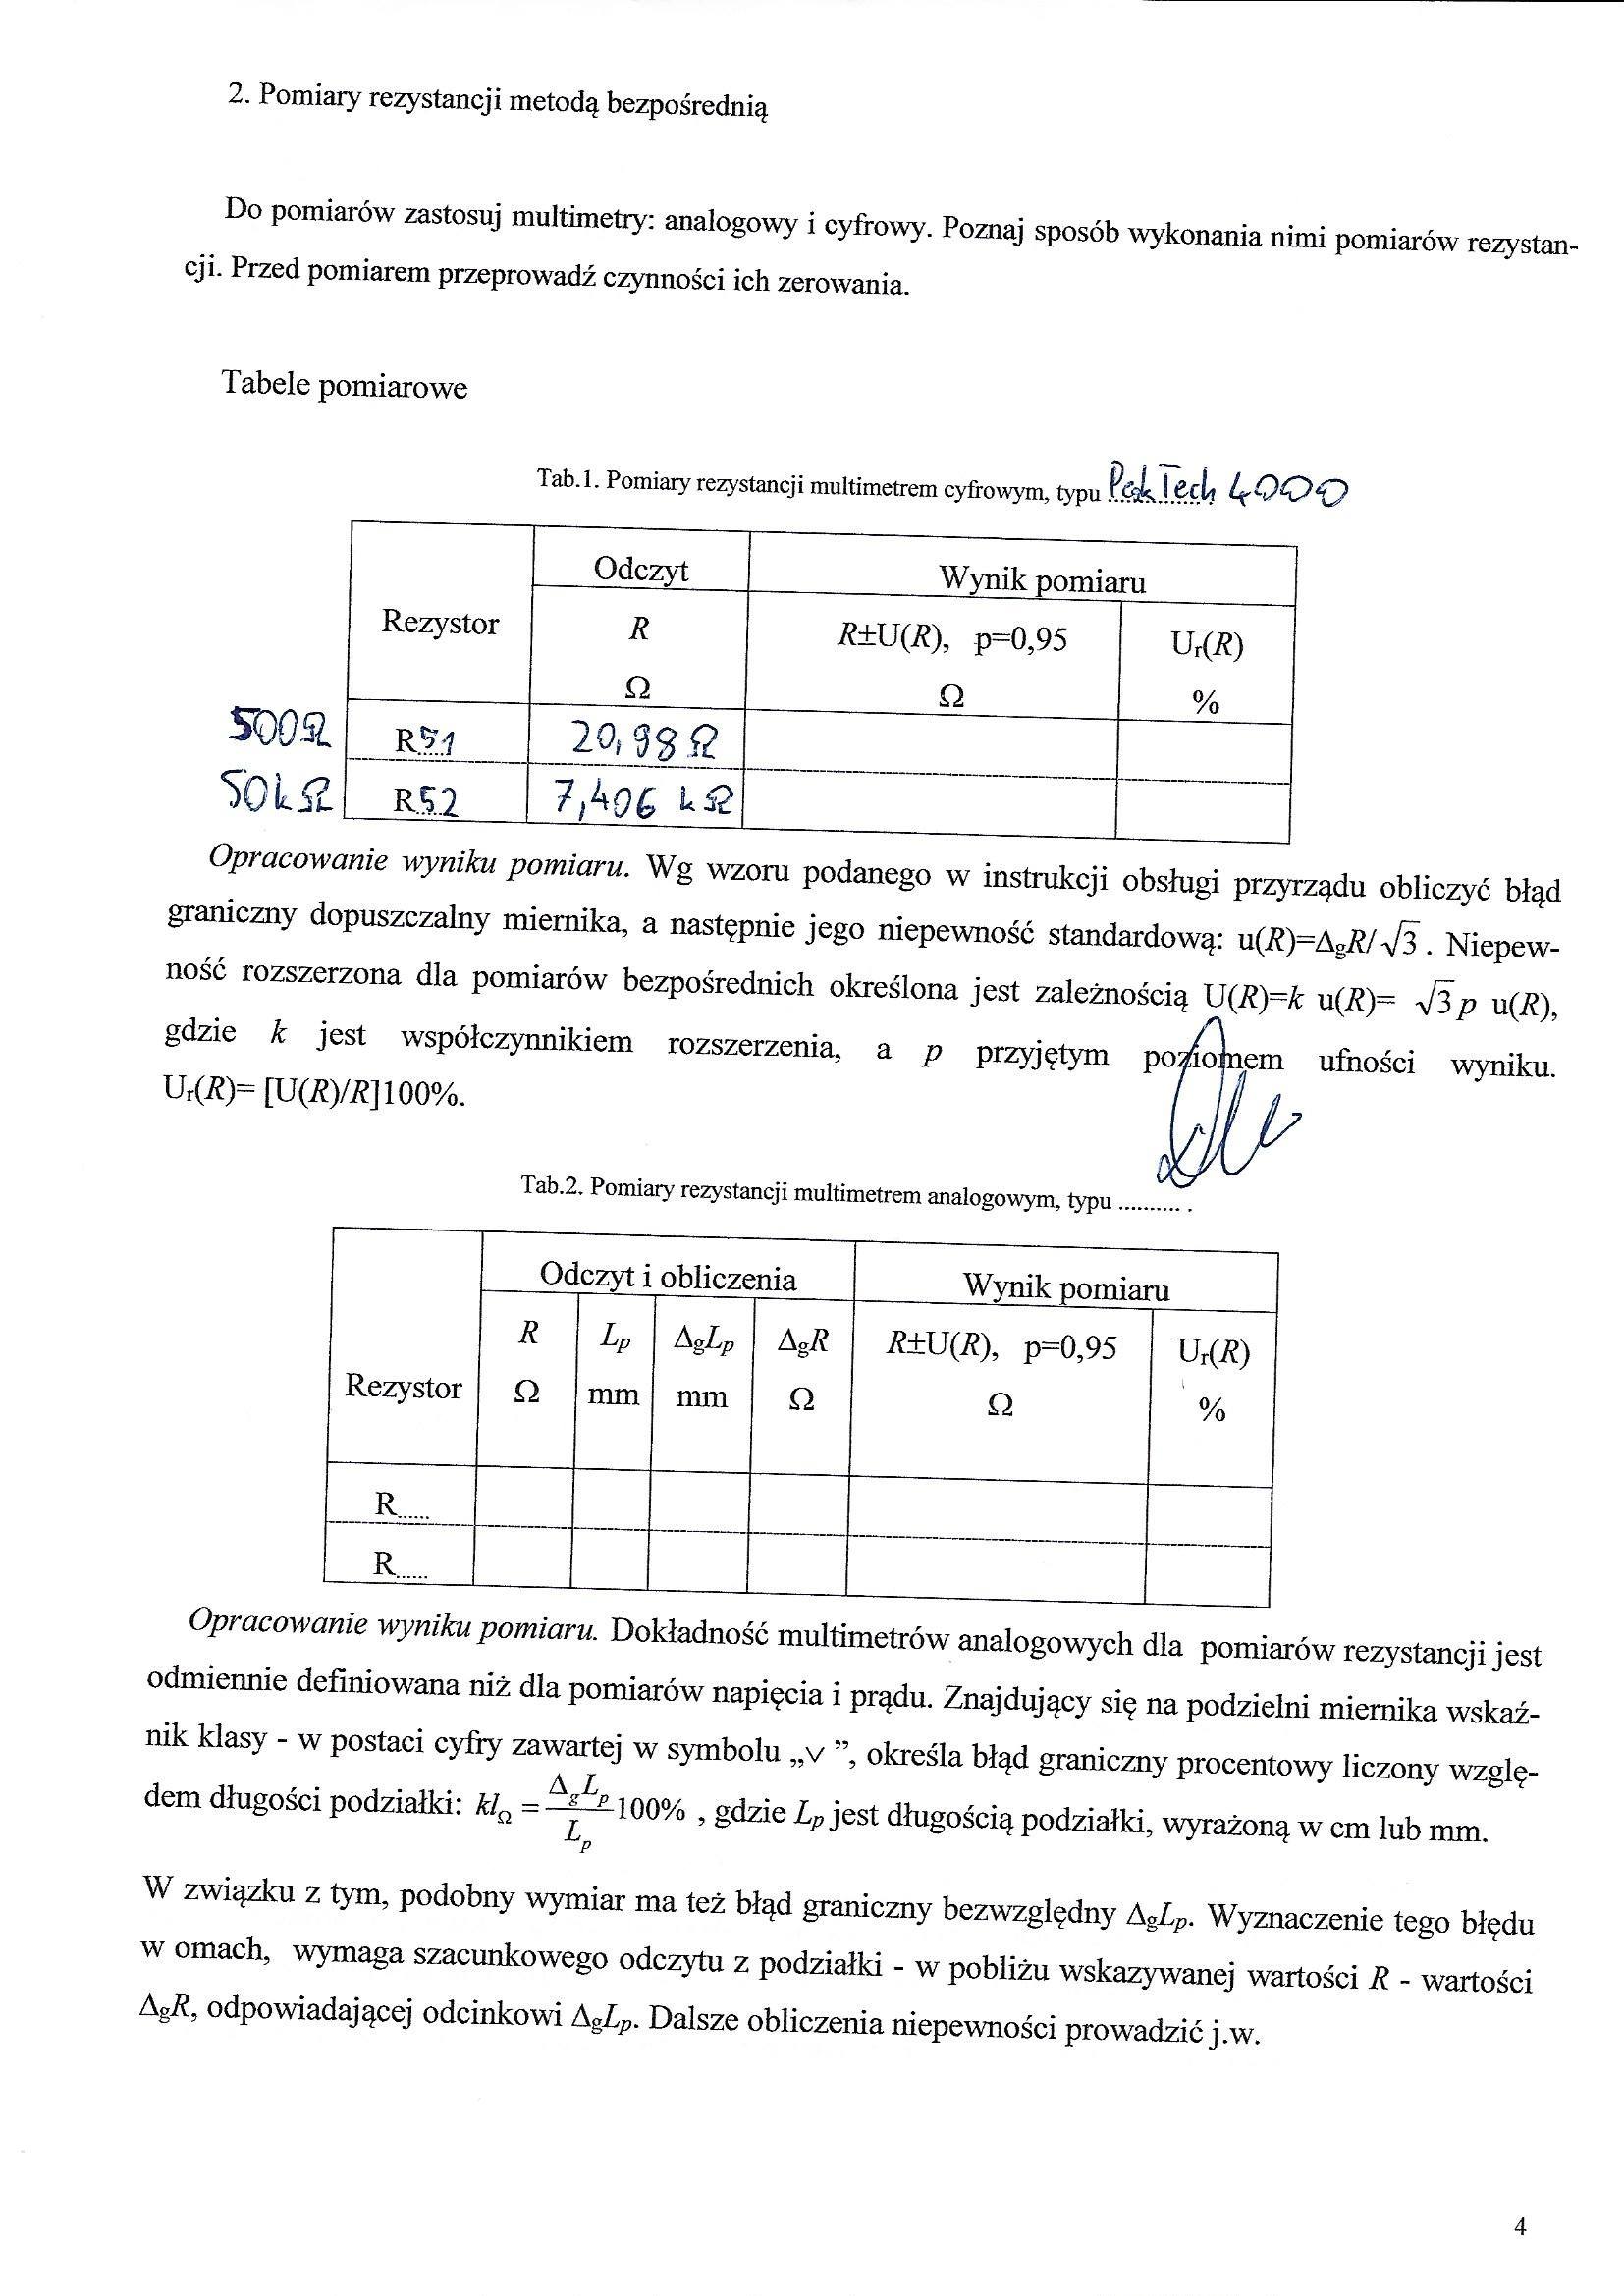 2. Pomiary rezystancji metodą bezpośrednią
Do pomiarów zastosuj multimetry: analogowy i cyfrowy. Poznaj sposób wykonania nimi pomiarów rezystan-
cji. Przed pomiarem przeprowadź czynności ich zerowania.
Tabele pomiarowe
Tab.1. Pomiary rezystancji multimetrem cyfrowym, typu PeakTech 4000
Rezystor
Odczyt
Wynik pomiaru
R
Ω
R±U(R), p=0,95
Ω
Ur(R)
%
500Ω R51 20,98 Ω
50kΩ R52 7,406 kΩ
Opracowanie wyniku pomiaru. Wg wzoru podanego w instrukcji obsługi przyrządu obliczyć błąd
graniczny dopuszczalny miernika, a następnie jego niepewność standardową: u(R)=ΔgR/√3. Niepew-
ność rozszerzona dla pomiarów bezpośrednich określona jest zależnością U(R)=k u(R)= √3p u(R),
gdzie k jest współczynnikiem rozszerzenia, a p przyjętym poziomem ufności wyniku.
Ur(R)= [U(R)/R]100%.
Tab.2. Pomiary rezystancji multimetrem analogowym, typu ...........
Rezystor
Odczyt i obliczenia
Wynik pomiaru
R
Ω
Lp
mm
ΔgLp
mm
ΔgR
Ω
R±U(R), p=0,95
Ω
Ur(R)
%
R.....
R.....
Opracowanie wyniku pomiaru. Dokładność multimetrów analogowych dla pomiarów rezystancji jest
odmiennie definiowana niż dla pomiarów napięcia i prądu. Znajdujący się na podzielni miernika wskaź-
nik klasy - w postaci cyfry zawartej w symbolu „∨ ”, określa błąd graniczny procentowy liczony wzglę-
dem długości podziałki: klΩ = ΔgLp/Lp 100% , gdzie Lp jest długością podziałki, wyrażoną w cm lub mm.
W związku z tym, podobny wymiar ma też błąd graniczny bezwzględny ΔgLp. Wyznaczenie tego błędu
w omach, wymaga szacunkowego odczytu z podziałki - w pobliżu wskazywanej wartości R - wartości
ΔgR, odpowiadającej odcinkowi ΔgLp. Dalsze obliczenia niepewności prowadzić j.w.
4